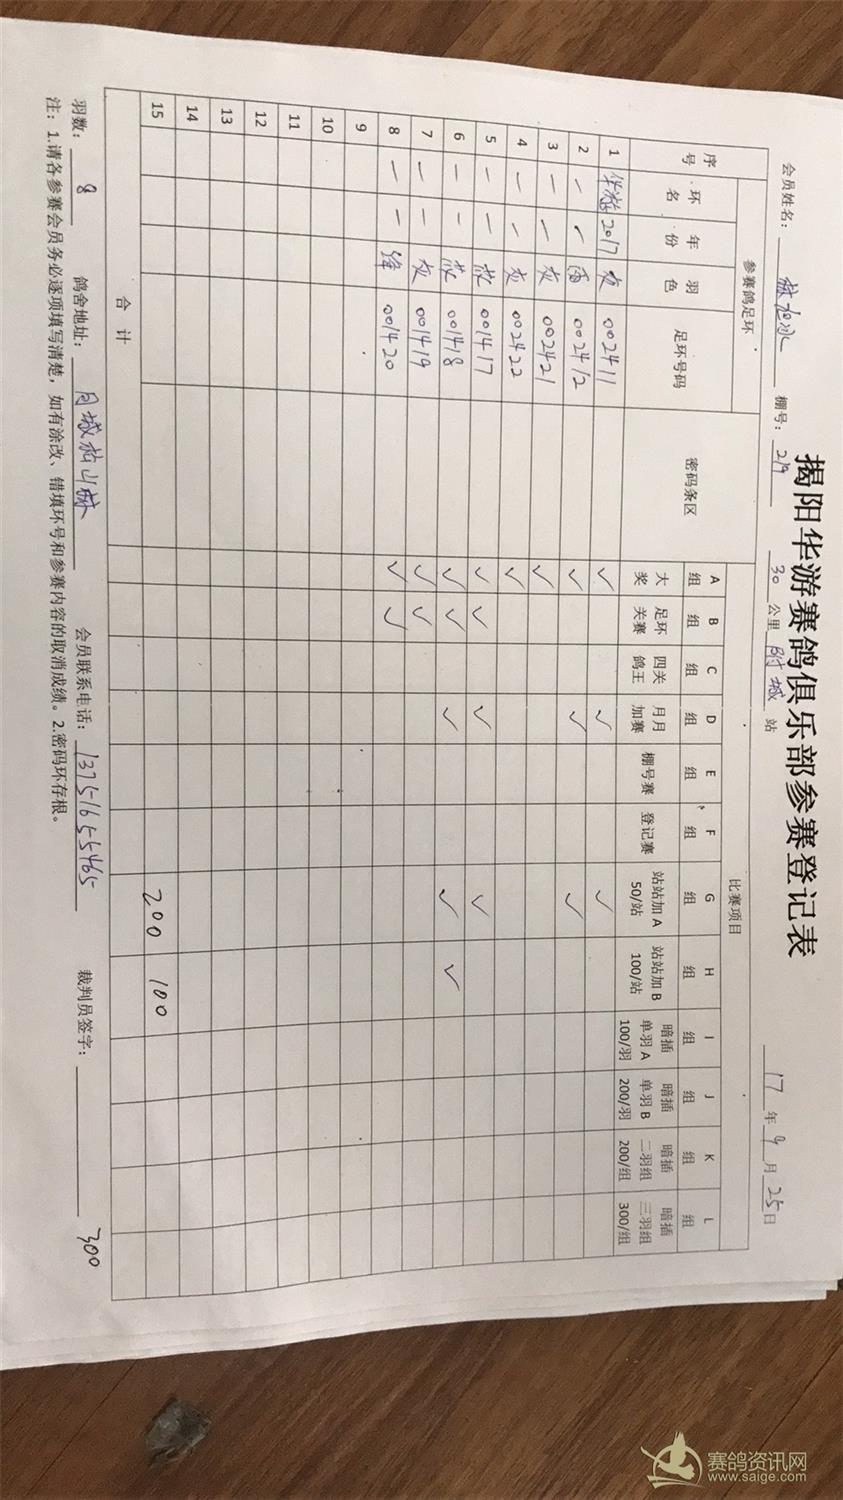 揭阳华游赛鸽俱乐部参赛登记表
会员姓名: 林旭冰 棚号: 219 30 公里 附城 站 17 年 9 月 25 日
序号 参赛鸽足环 密码条区 比赛项目
环名 年份 羽色 足环号码 A组 B组 C组 D组 E组 F组 G组 H组 I组 J组 K组 L组
大奖 足环关赛 四关鸽王 月月加赛 棚号赛 登记赛 站站加A 50/站 站站加B 100/站 暗插单羽A 100/羽 暗插单羽B 200/羽 暗插二羽组 200/组 暗插三羽组 300/组
1 华游 2017 灰 002411 ✓ ✓ ✓
2 一 一 雨 002412 ✓ ✓ ✓
3 一 一 灰 002421 ✓
4 一 一 灰 002422 ✓
5 一 一 001417 ✓ ✓ ✓ ✓
6 一 一 001418 ✓ ✓ ✓ ✓ ✓
7 一 一 灰 001419 ✓ ✓
8 一 一 绛 001420 ✓ ✓
9
10
11
12
13
14
15 200 100
合 计
羽数: 8 鸽舍地址: 月城松山林 会员联系电话: 13751655465 裁判员签字: 300
注: 1.请各参赛会员务必逐项填写清楚, 如有涂改、错填环号和参赛内容的取消成绩。2.密码环存根。
赛鸽资讯网
www.saige.com